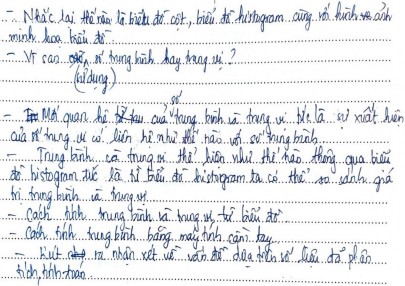 - Nhắc lại thế nào là biểu đồ cột, biểu đồ histogram cùng với hình vẽ ảnh
minh họa biểu đồ.
- Vì sao số trung bình hay trung vị?
(sử dụng)
- Mối quan hệ của số trung bình và trung vị tức là sự xuất hiện
của số trung vị có liên hệ như thế nào với số trung bình.
- Trung bình và trung vị thể hiện như thế nào thông qua biểu
đồ histogram tức là từ biểu đồ histogram ta có thể so sánh giá
trị trung bình và trung vị
- Cách tính trung bình và trung vị từ biểu đồ
- Cách tính trung bình bằng máy tính cầm tay.
- Rút ra nhận xét về vấn đề dựa trên số liệu đã phân
tích, tính toán.